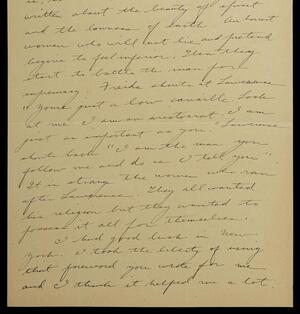 written about the beauty of spirit
and the lowness of earth. An honest
woman who will not lie and pretend
begins to feel inferior. Then they
start to battle the man for
supremacy. Frieda shouts at Lawrence
"Your just a low canaille. Look
at me I am an aristocrat. I am
just as important as you." Lawrence
shouts back "I am the man you
follow me and do as I tell you"
It is strange the women who ran
after Lawrence. They all wanted
his religion but they wanted to
possess it all for themselves.
I had good luck in New
York. I took the liberty of using
that foreword you wrote for me
and I think it helped me a lot.